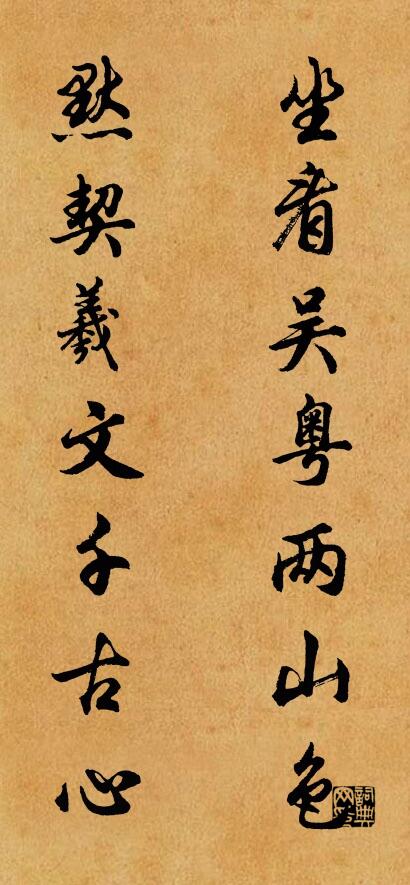 坐看吴粤两山色
默契羲文千古心